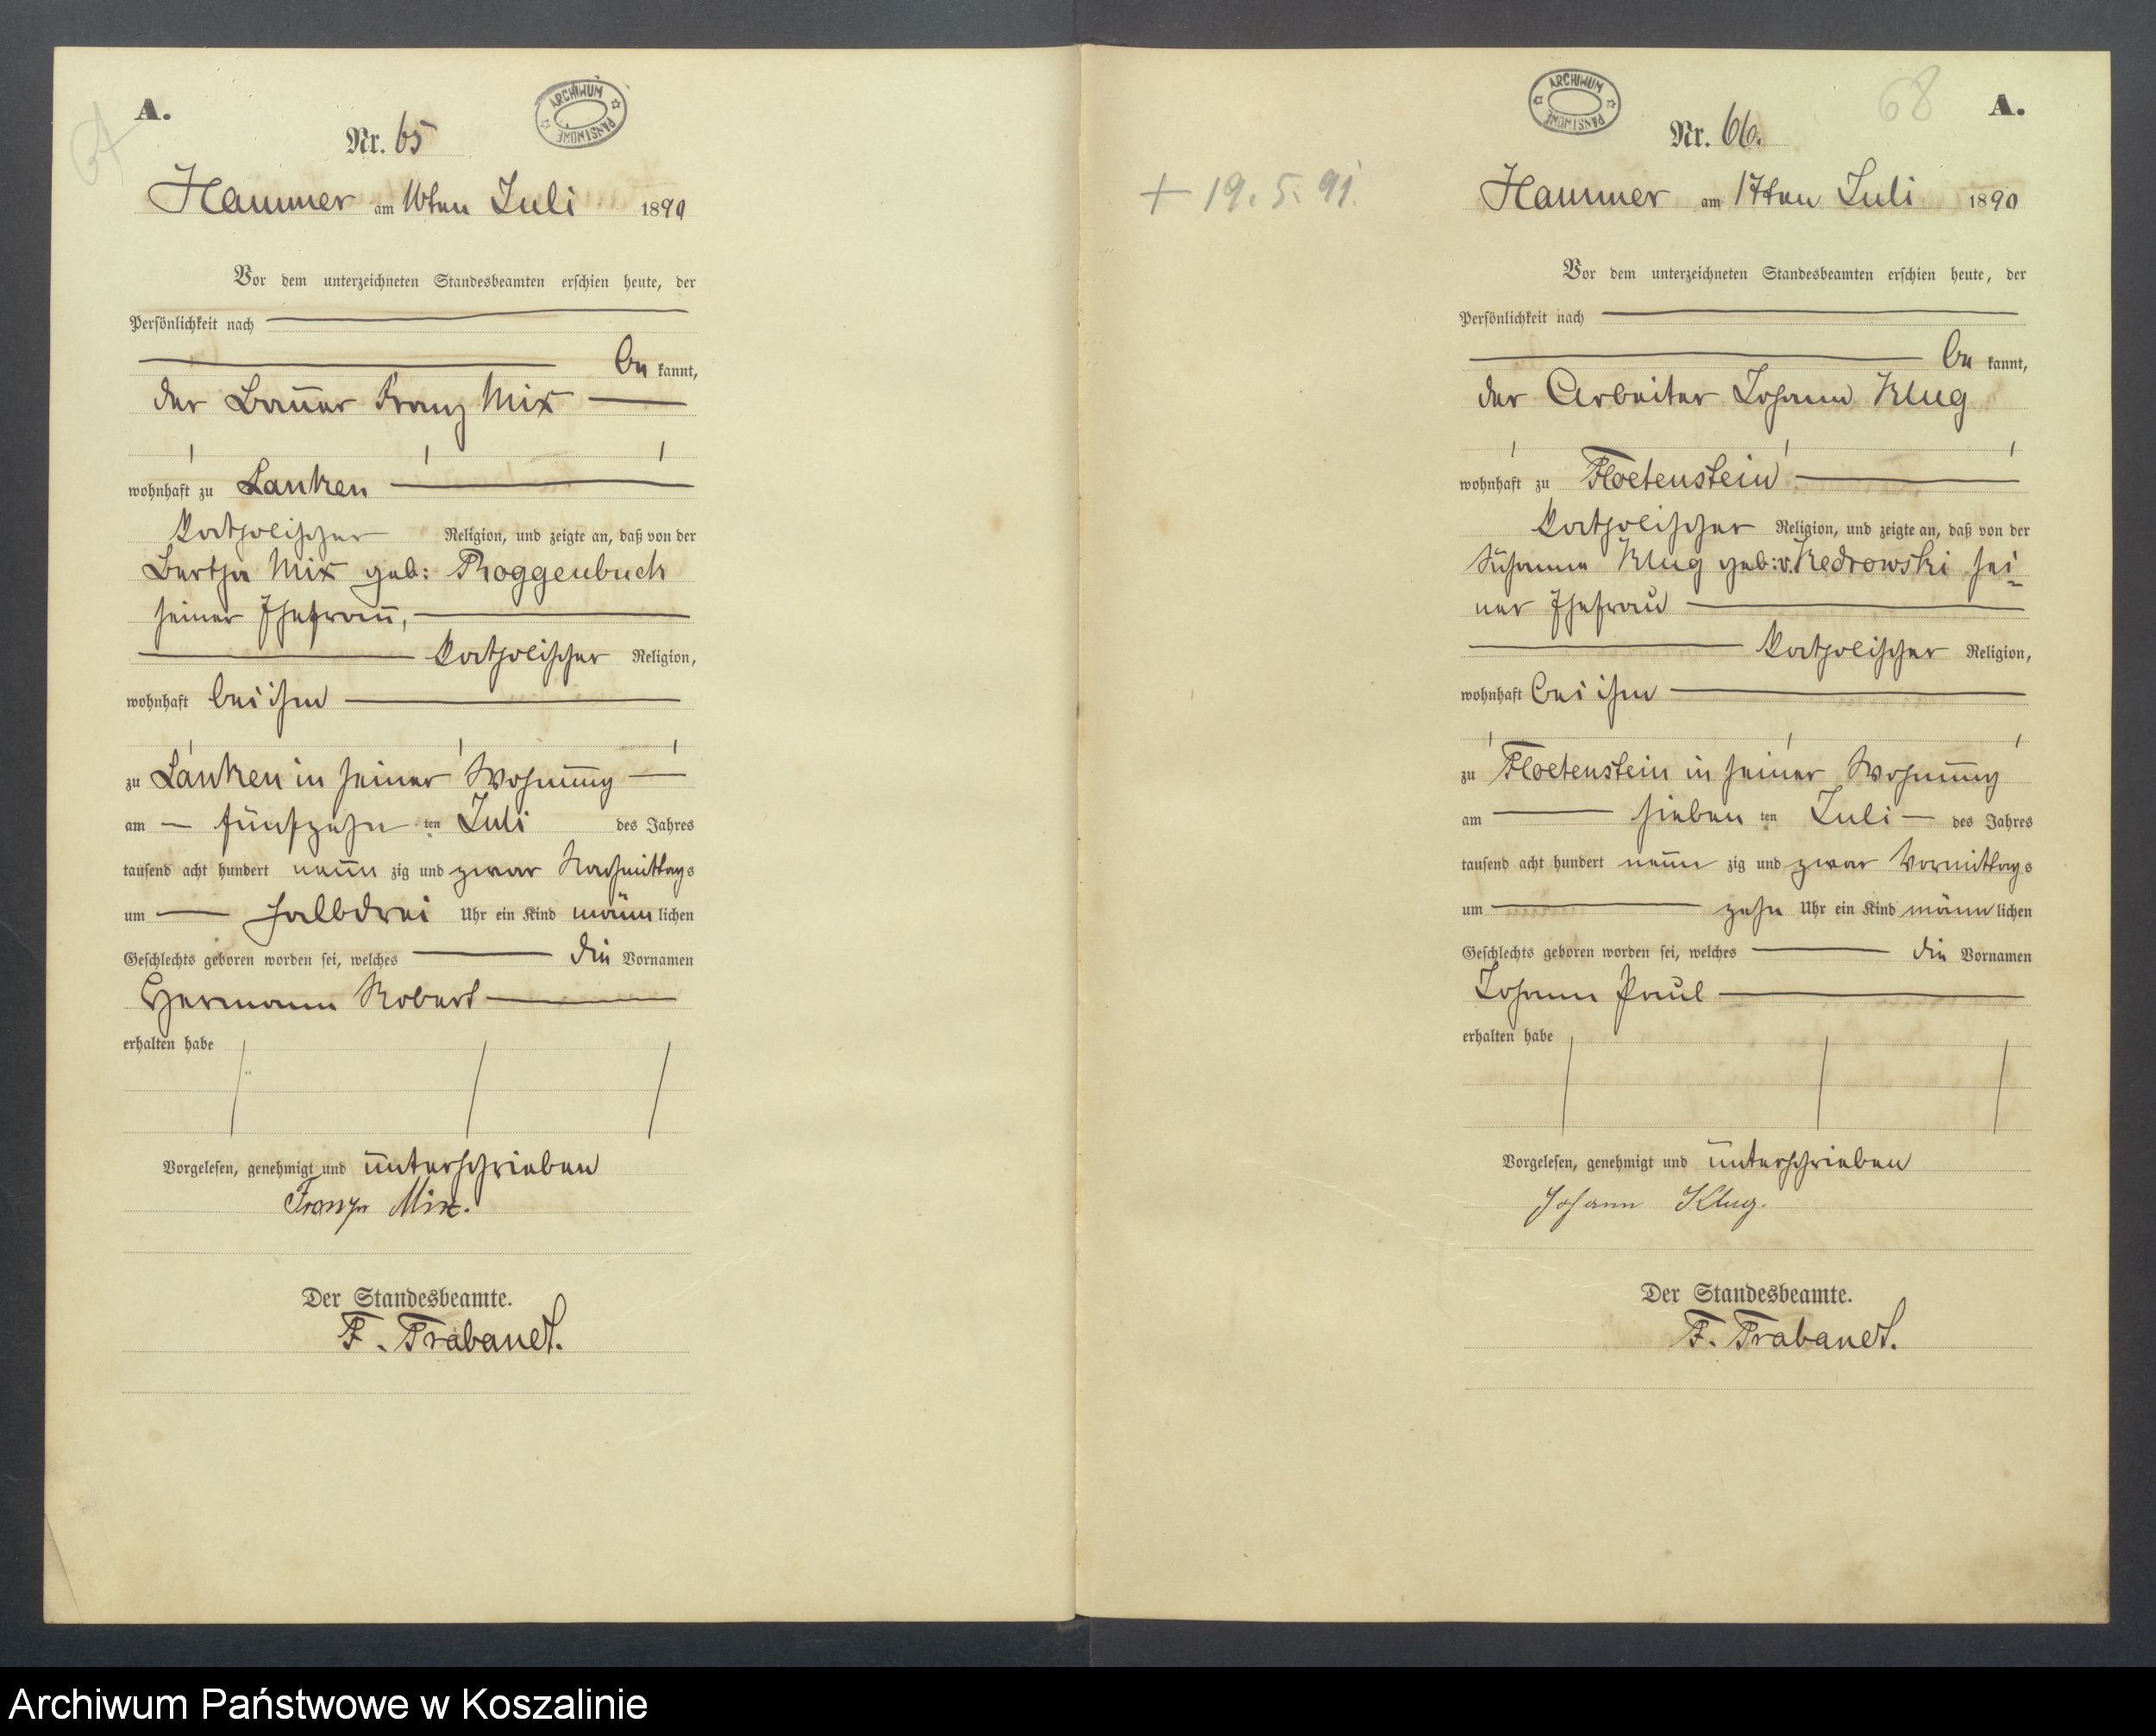 A.
ARCHIWUM PAŃSTWOWE
Nr. 65
Hammer am 16ten Juli 1890
Vor dem unterzeichneten Standesbeamten erschien heute, der
Persönlichkeit nach
be kannt,
der Bauer Franz Mix
wohnhaft zu Lanken
katholischer Religion, und zeigte an, daß von der
Bertha Mix geb: Roggenbuck
seiner Ehefrau,
katholischer Religion,
wohnhaft bei ihm
zu Lanken in seiner Wohnung
am fünfzehn ten Juli des Jahres
tausend acht hundert neun zig und zwar Nachmittags
um halbdrei Uhr ein Kind männlichen
Geschlechts geboren worden sei, welches die Vornamen
Hermann Robert
erhalten habe
Vorgelesen, genehmigt und unterschrieben
Franz Mix.
Der Standesbeamte.
F. Trabandt.
ARCHIWUM PAŃSTWOWE
68
A.
Nr. 66.
+ 19. 5. 91.
Hammer am 17ten Juli 1890
Vor dem unterzeichneten Standesbeamten erschien heute, der
Persönlichkeit nach
be kannt,
der Arbeiter Johann Klug
wohnhaft zu Floetenstein
katholischer Religion, und zeigte an, daß von der
Susanna Klug geb: v. Kedrowski sei=
ner Ehefrau
katholischer Religion,
wohnhaft bei ihm
zu Floetenstein in seiner Wohnung
am sieben ten Juli des Jahres
tausend acht hundert neun zig und zwar Vormittags
um zehn Uhr ein Kind männlichen
Geschlechts geboren worden sei, welches die Vornamen
Johann Paul
erhalten habe
Vorgelesen, genehmigt und unterschrieben
Johann Klug.
Der Standesbeamte.
F. Trabandt.
Archiwum Państwowe w Koszalinie